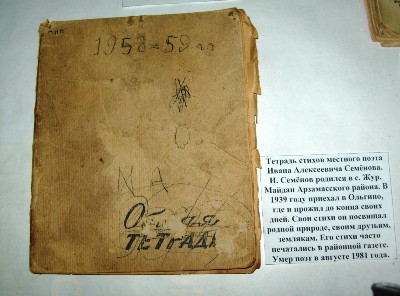 1958-59 гг
Общая
ТЕТРАДЬ
Тетрадь стихов местного поэта
Ивана Алексеевича Семёнова.
И. Семёнов родился в с. Жур.
Майдан Арзамасского района. В
1939 году приехал в Ольгино,
где и прожил до конца своих
дней. Свои стихи он посвящал
родной природе, своим друзьям,
землякам. Его стихи часто
печатались в районной газете.
Умер поэт в августе 1981 года.